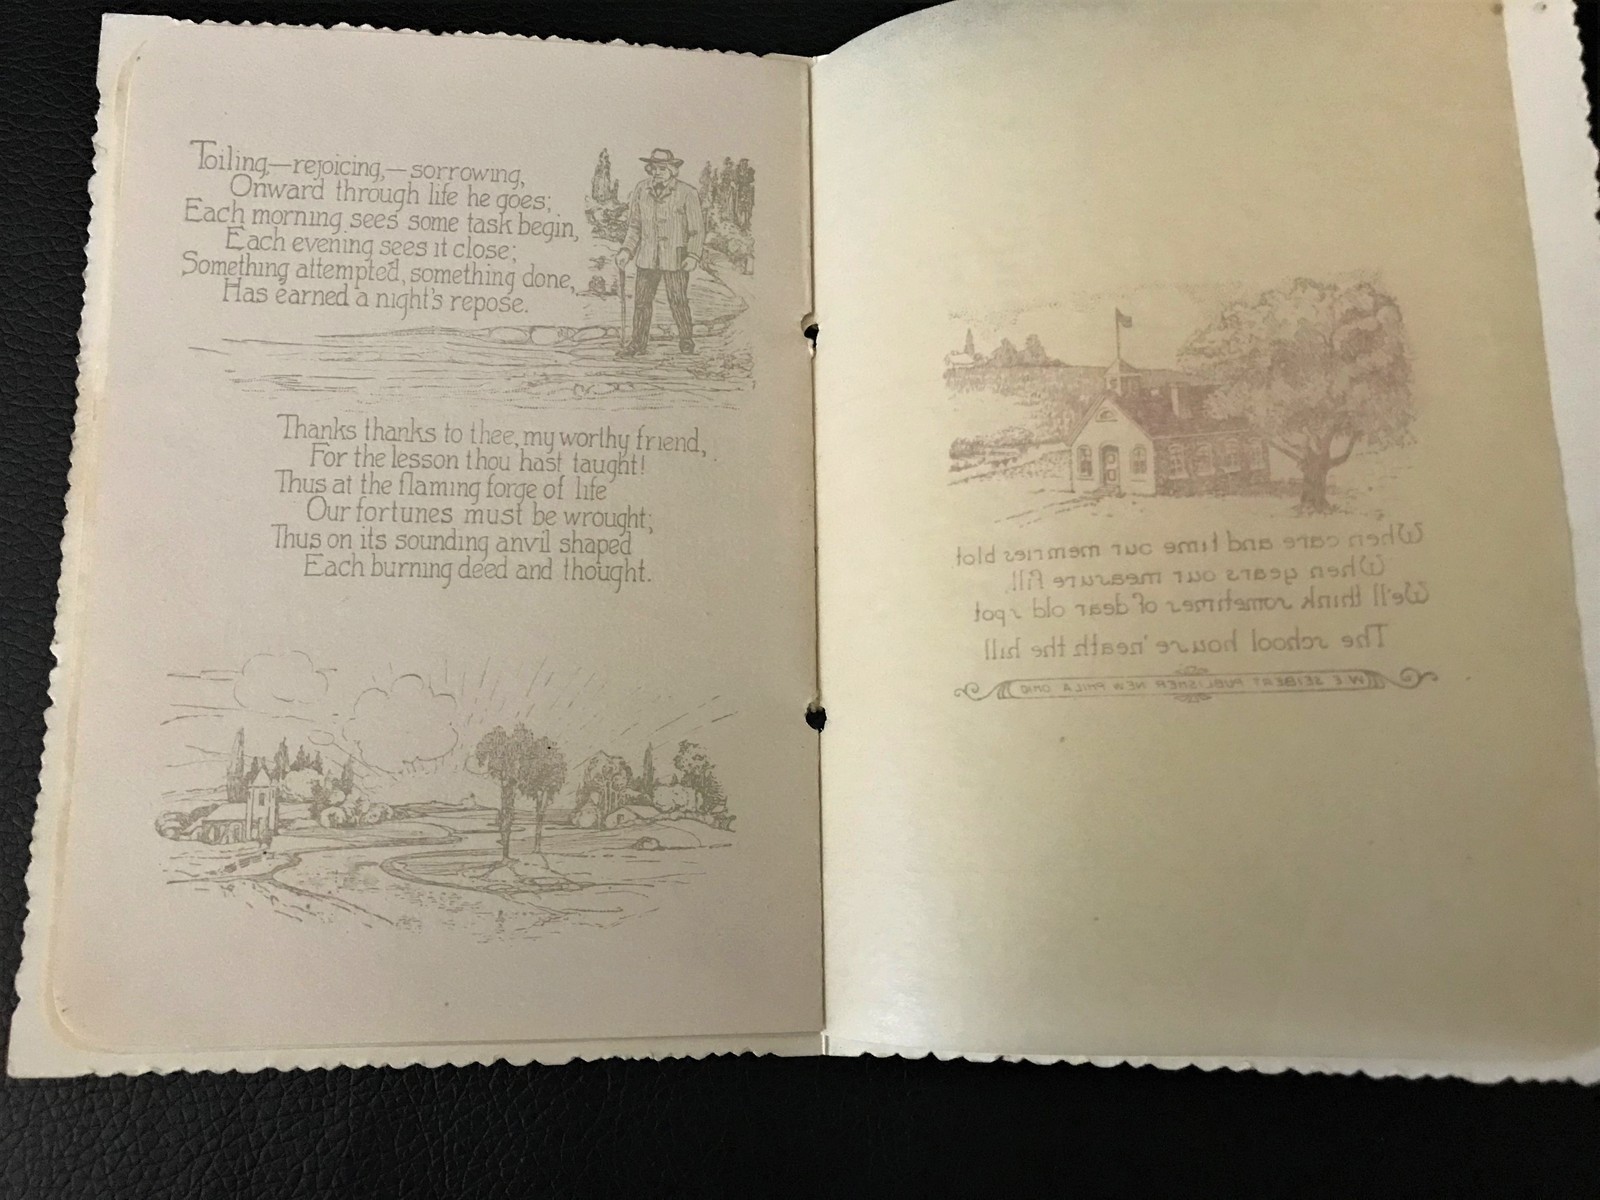 Toiling,—rejoicing,—sorrowing,
Onward through life he goes;
Each morning sees some task begin,
Each evening sees it close;
Something attempted, something done,
Has earned a night's repose.
Thanks thanks to thee, my worthy friend,
For the lesson thou hast taught!
Thus at the flaming forge of life
Our fortunes must be wrought;
Thus on its sounding anvil shaped
Each burning deed and thought.
When care and time our memries blot
When years our measure fill,
We'll think sometimes of dear old spot
The school house 'neath the hill
W.E. SEIBERT PUBLISHER NEW PHILA OHIO